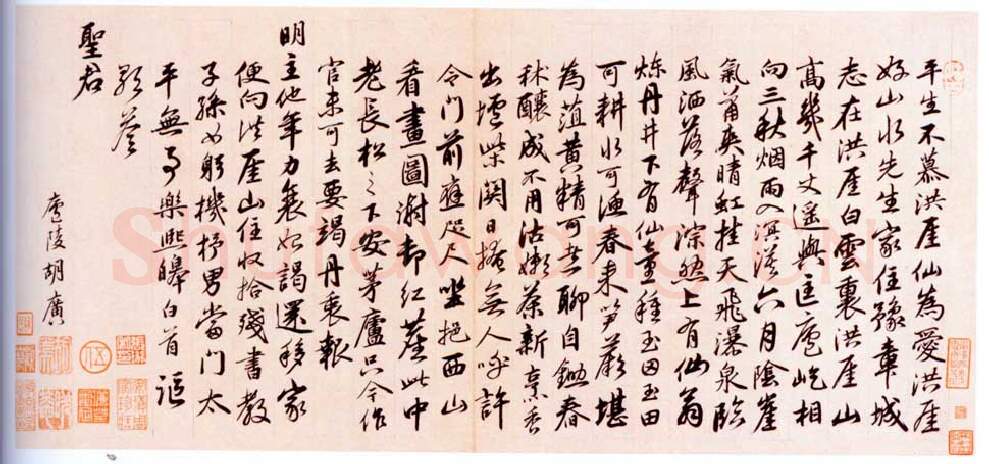 平生不慕洪厓仙為愛洪厓
好山水先生家住豫章城
志在洪厓白雲裏洪厓山
高幾千丈遥與匡廬屹相
向三秋烟雨入溟濛六月陰崖
氣蕭爽晴虹挂天飛瀑泉臨
風洒落聲淙然上有仙翁
煉丹井下有仙童種玉田玉田
可耕水可漁春来笋蕨堪
為菹黄精可煑聊自鋤春
秫釀成不用沽嫩茶新烹香
出壚柴関日掩無人呼許
令門前莊咫尺坐挹西山
看畫圖謝却紅塵此中
老長松之下安茅廬只今作
官未可去要竭丹衷報
明主他年力衰如謁還移家
便向洪厓山住収拾殘書教
子孫女躬機杼男當門太
平無事樂熙皞白首謳
歌荅
聖君
廬陵胡廣
Shufawang.CN